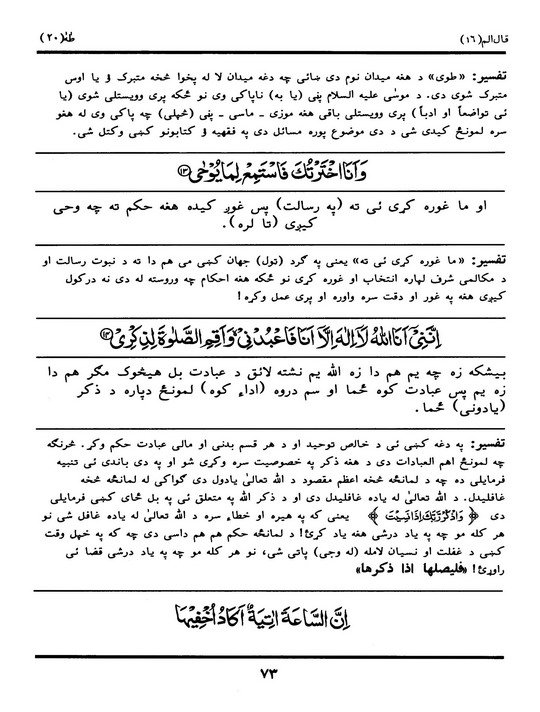 قال الم(١٦) طٰهٰ(٢٠)
تفسیر: «طوی» د هغه میدان نوم دی ښائی چه دغه میدان لا له پخوا څخه متبرک ؤ یا اوس
متبرک شوی دی. د موسٰی علیه السلام پښی (یا به) ناپاکی وی نو ځکه پری وویستلی شوی (یا
ئی تواضعاً او ادباً) پری وویستلی باقی هغه موزی - ماسی - پښی (څپلی) چه پاکی وی له هغو
سره لمونځ کیدی شی د دی موضوع پوره مسائل دی په فقهیه ؤ کتابونو کښی وکتل شی.
وَاَنَا اخْتَرْتُكَ فَاسْتَمِعْ لِمَا يُوْحٰى ۝١٣
او ما غوره کړی ئی ته (په رسالت) پس غوږ کیده هغه حکم ته چه وحی
کیږی (تا لره).
تفسیر: «ما غوره کړی ئی ته» یعنی په گرد (ټول) جهان کښی می هم دا ته د نبوت رسالت او
د مکالمی شرف لپاره انتخاب او غوره کړی نو ځکه هغه احکام چه وروسته له دی نه درکول
کیږی هغه په غور او دقت سره واوره او پری عمل وکړه!
اِنَّنِيْٓ اَنَا اللّٰهُ لَآ اِلٰهَ اِلَّآ اَنَا فَاعْبُدْنِيْ وَاَقِمِ الصَّلٰوةَ لِذِكْرِيْ ۝١٤
بیشکه زه چه یم هم دا زه الله یم نشته لائق د عبادت بل هیڅوک مگر هم دا
زه یم پس عبادت کوه ځما او سم دروه (اداء کوه) لمونځ دپاره د ذکر
(یادونی) ځما.
تفسیر: په دغه کښی ئی د خالص توحید او د هر قسم بدنی او مالی عبادت حکم وکړ. څرنگه
چه لمونځ اهم العبادات دی د هغه ذکر په خصوصیت سره وکړی شو او په دی باندی ئی تنبیه
فرمایلی ده چه د لمانځه څخه اعظم مقصود د الله تعالیٰ یادول دی گواکی له لمانځه څخه
غافلیدل. د الله تعالیٰ له یاده غافلیدل دی او د ذکر الله په متعلق ئی په بل ځای کښی فرمایلی
دی ﴿ وَاذْكُرْ رَّبَّكَ اِذَا نَسِيْتَ ﴾ یعنی که په هیره او خطاء سره د الله تعالیٰ له یاده غافل شی نو
هر کله مو چه په یاد درشی هغه یاد کړئ! د لمانځه حکم هم هم داسی دی چه که په خپل وقت
کښی د غفلت او نسیان لامله (له وجی) پاتی شی، نو هر کله مو چه په یاد درشی قضا ئی
راوړئ! «فلیصلها اذا ذکرها»
اِنَّ السَّاعَةَ اٰتِيَةٌ اَكَادُ اُخْفِيْهَا
٧٣